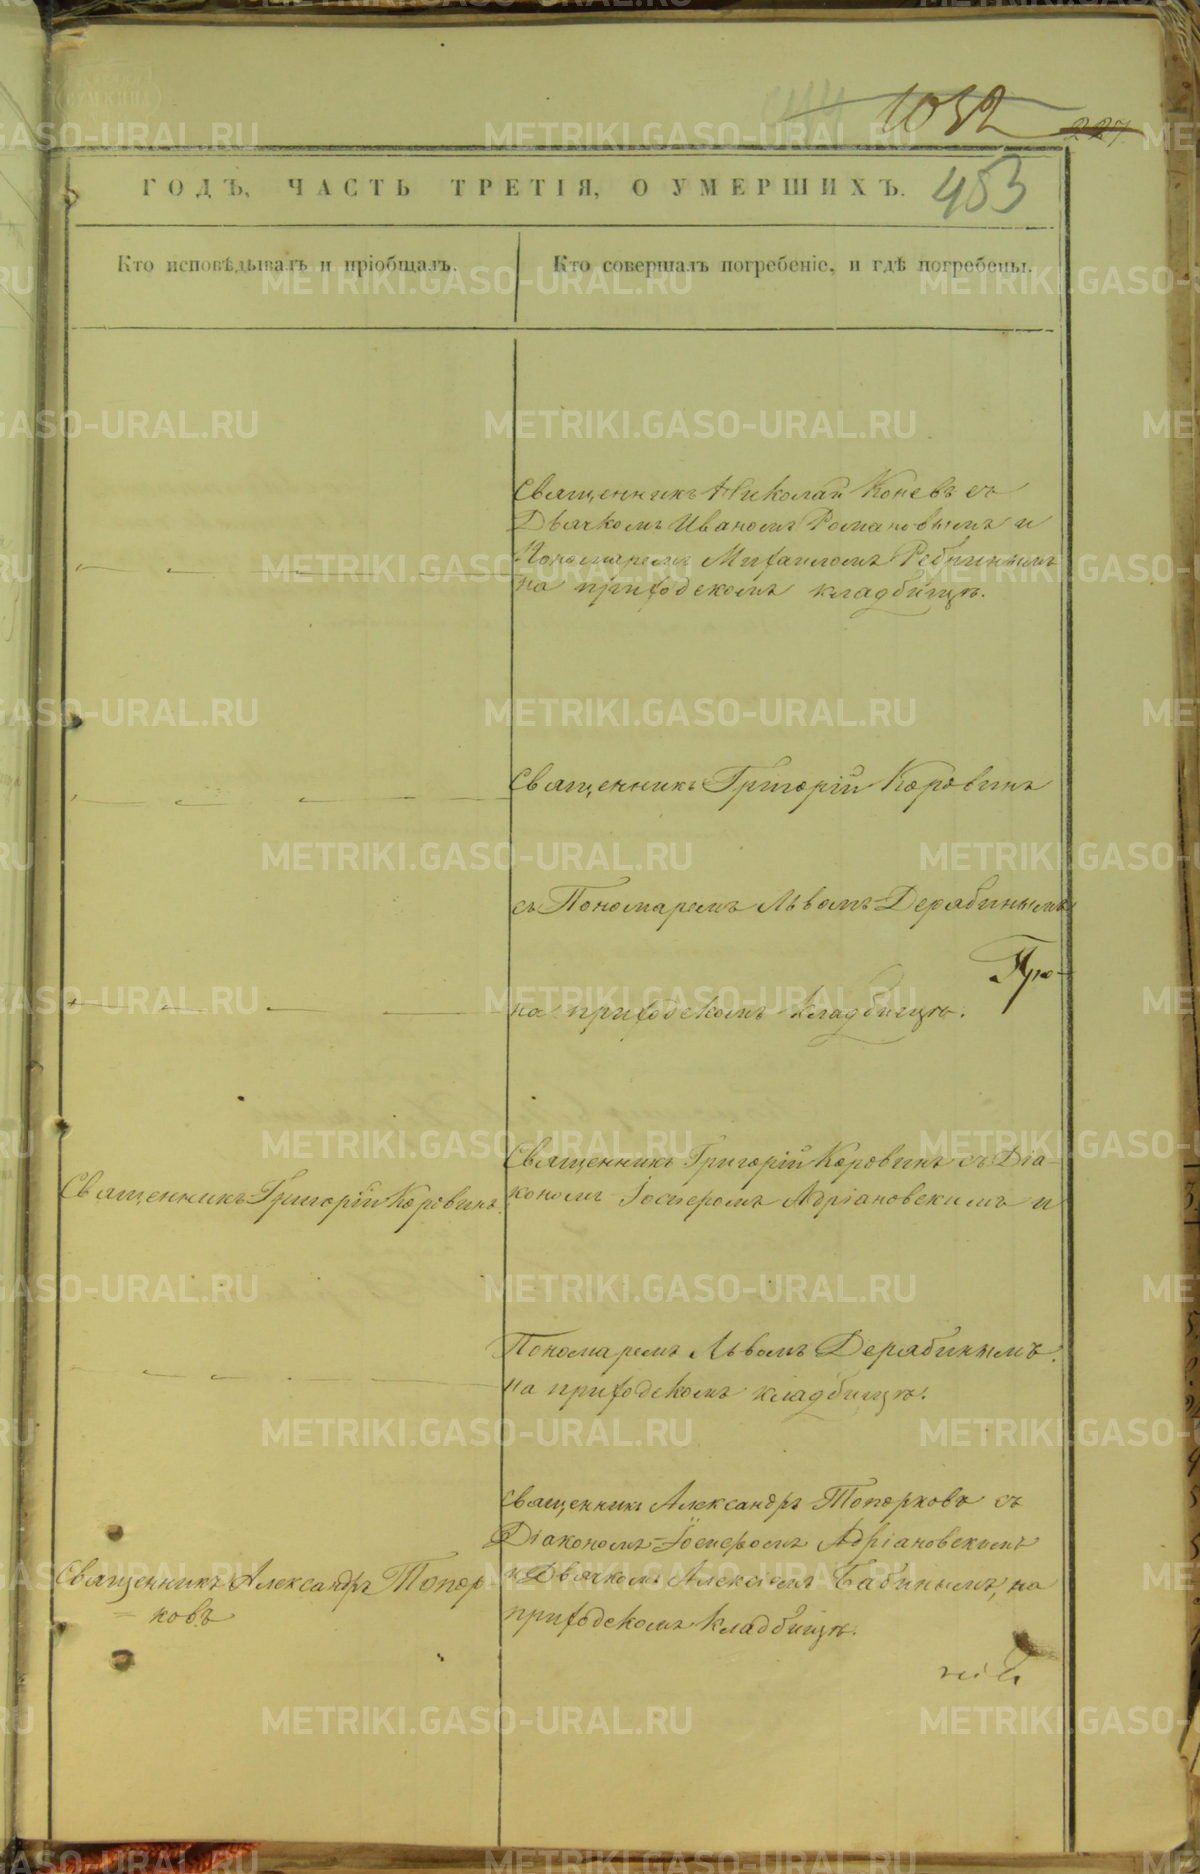 1052
227
ГОДЪ, ЧАСТЬ ТРЕТІЯ, О УМЕРШИХЪ.
453
Кто исповѣдывалъ и пріобщалъ.
Кто совершалъ погребеніе, и гдѣ погребены.
Священникъ Николай Коневъ съ
Дьячкомъ Иваномъ Романовымъ и
Пономаремъ Михаиломъ Ребринымъ
на приходскомъ кладбищѣ.
Священникъ Григорій Коровинъ
съ Пономаремъ Львомъ Дерябинымъ
на приходскомъ кладбищѣ.
Священникъ Григорій Коровинъ
Священникъ Григорій Коровинъ съ Діа-
кономъ Іосифомъ Адріановскимъ и
Пономаремъ Львомъ Дерябинымъ.
на приходскомъ кладбищѣ.
Священникъ Александръ Топор-
ковъ
Священникъ Александръ Топорковъ съ
Діакономъ Іосифомъ Адріановскимъ
и Дьячкомъ Алексіемъ Бабинымъ, на
приходскомъ кладбищѣ.
METRIKI.GASO-URAL.RU